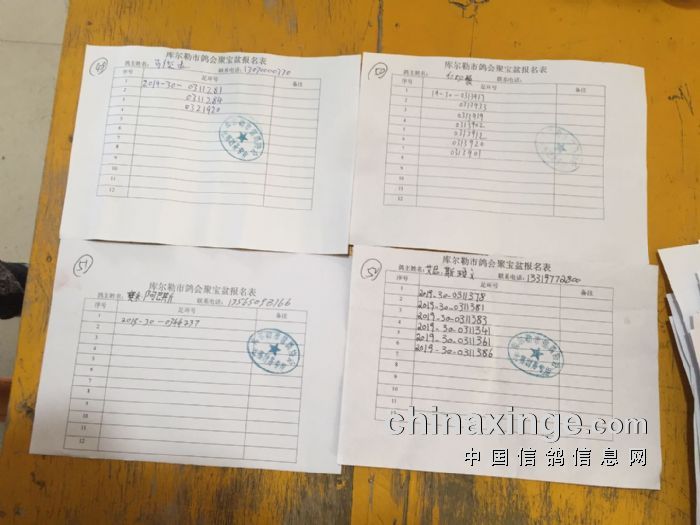 库尔勒市鸽会聚宝盆报名表
鸽主姓名: 联系电话:
序号 足环号 备注
1 2019-30-0311281
2 0311284
3 0321920
4
5
6
7
8
9
10
11
12
50
库尔勒市鸽会聚宝盆报名表
鸽主姓名: 联系电话:
序号 足环号 备注
1 19-30-0313937
2 0313933
3 0313919
4 0313902
5 0313912
6 0313920
7 0313901
8
9
10
11
12
51
库尔勒市鸽会聚宝盆报名表
鸽主姓名: 联系电话:
序号 足环号 备注
1
2
3
4
5
6
7
8
9
10
11
12
库尔勒市鸽会聚宝盆报名表
鸽主姓名: 联系电话: 13319772800
序号 足环号 备注
1 2019-30-0311378
2 2019-30-0311381
3 2019-30-0311383
4 2019-30-0311341
5 2019-30-0311361
6 2019-30-0311386
7
8
9
10
11
12
chinaxinge.com
中国信鸽信息网